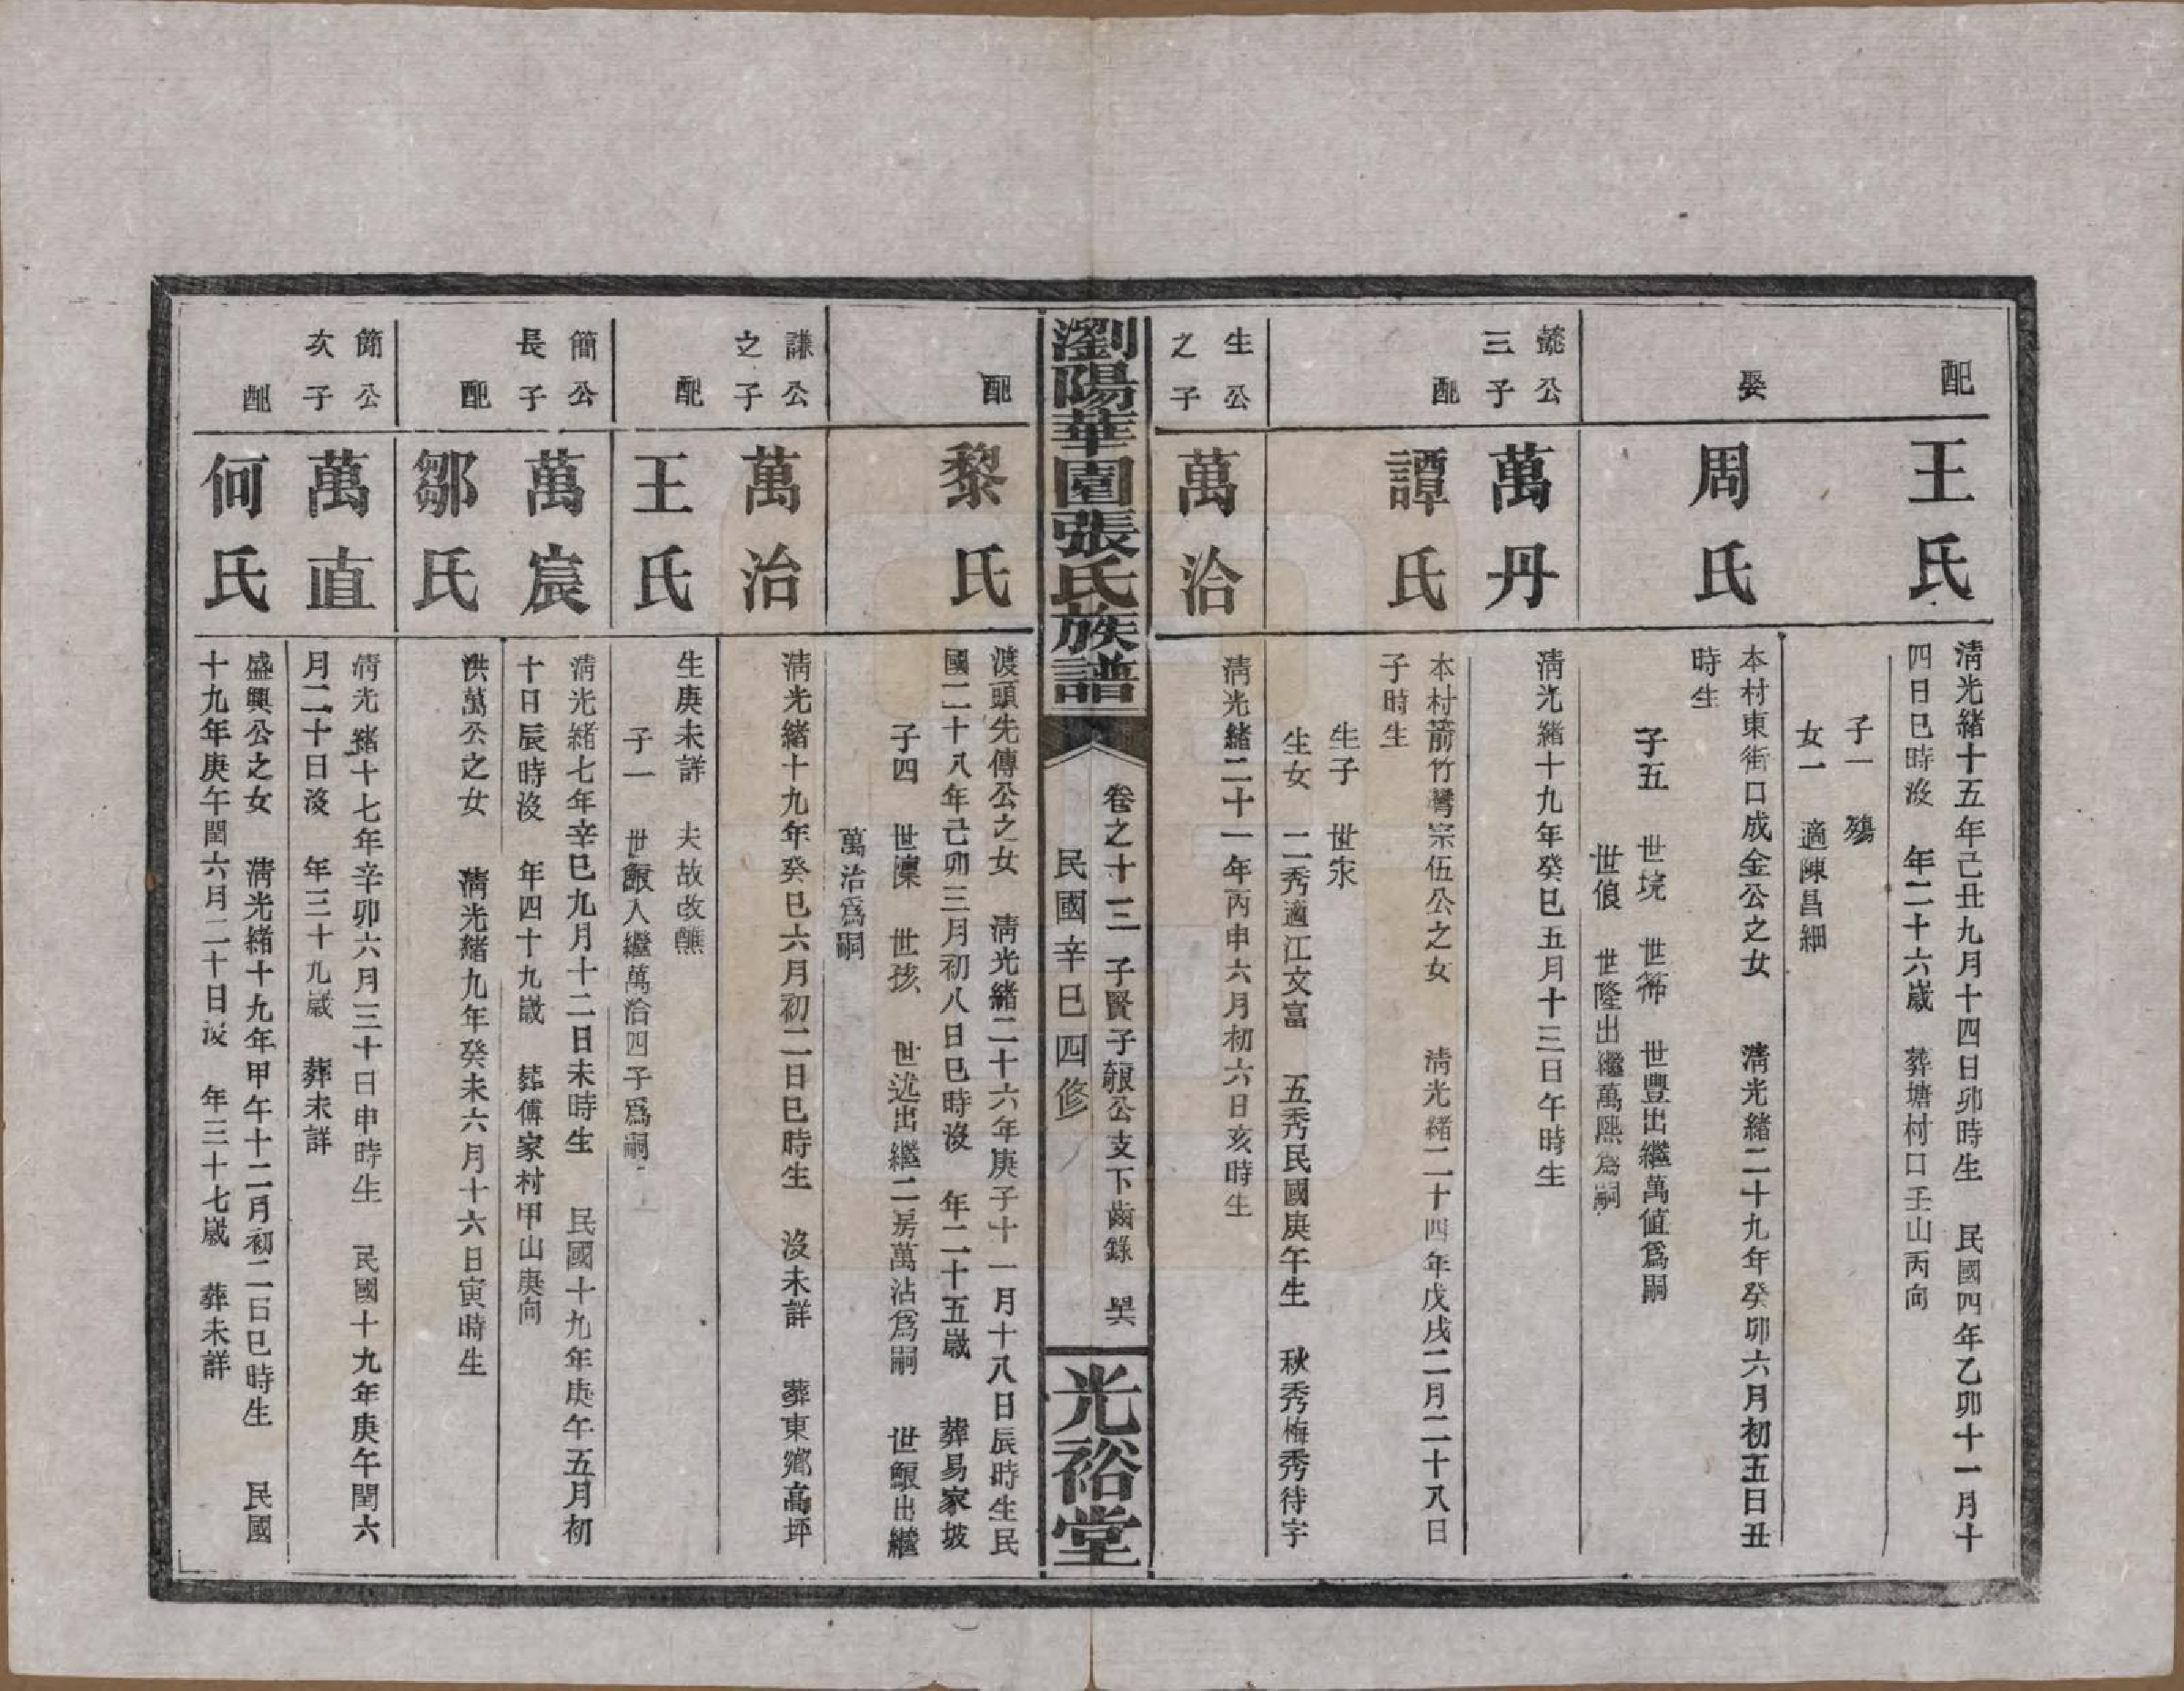 配
王氏
清光緒十五年己丑九月十四日卯時生 民國四年乙卯十一月十
四日巳時沒 年二十六歲 葬塘村口壬山丙向
子一 殤
女一 適陳昌細
娶
周氏
本村東街口成金公之女 清光緒二十九年癸卯六月初五日丑
時生
子五 世垸 世 世豐出繼萬值為嗣
世俍 世隆出繼萬熙為嗣
公
三子
萬丹
清光緒十九年癸巳五月十三日午時生
配
譚氏
本村箭竹灣宗伍公之女 清光緒二十四年戊戌二月二十八日
子時生
生子 世永
生女 二秀適江文富 五秀民國庚午生 秋秀梅秀待字
生公
之子
萬洽
清光緒二十一年丙申六月初六日亥時生
瀏陽華園張氏族譜
卷之十三 子賢子 公支下齒錄 㫒
民國辛巳四修
光裕堂
配
黎氏
渡頭先傳公之女 清光緒二十六年庚子十一月十八日辰時生民
國二十八年己卯三月初八日巳時沒 年二十五歲 葬易家坡
子四 世 世孩 世 出繼二房萬沾為嗣 世 出繼
萬治為嗣
謙公
之子
萬治
清光緒十九年癸巳六月初二日巳時生 沒未詳 葬東鄉高坪
配
王氏
生庚未詳 夫故改醮
子一 世 入繼萬洽四子為嗣
簡公
長子
萬宸
清光緒七年辛巳九月十二日未時生 民國十九年庚午五月初
十日辰時沒 年四十九歲 葬傅家村甲山庚向
配
鄒氏
洪萬公之女 清光緒九年癸未六月十六日寅時生
簡公
次子
萬直
清光緒十七年辛卯六月三十日申時生 民國十九年庚午閏六
月二十日沒 年三十九歲 葬未詳
配
何氏
盛興公之女 清光緒十九年甲午十二月初二日巳時生 民國
十九年庚午閏六月二十日沒 年三十七歲 葬未詳